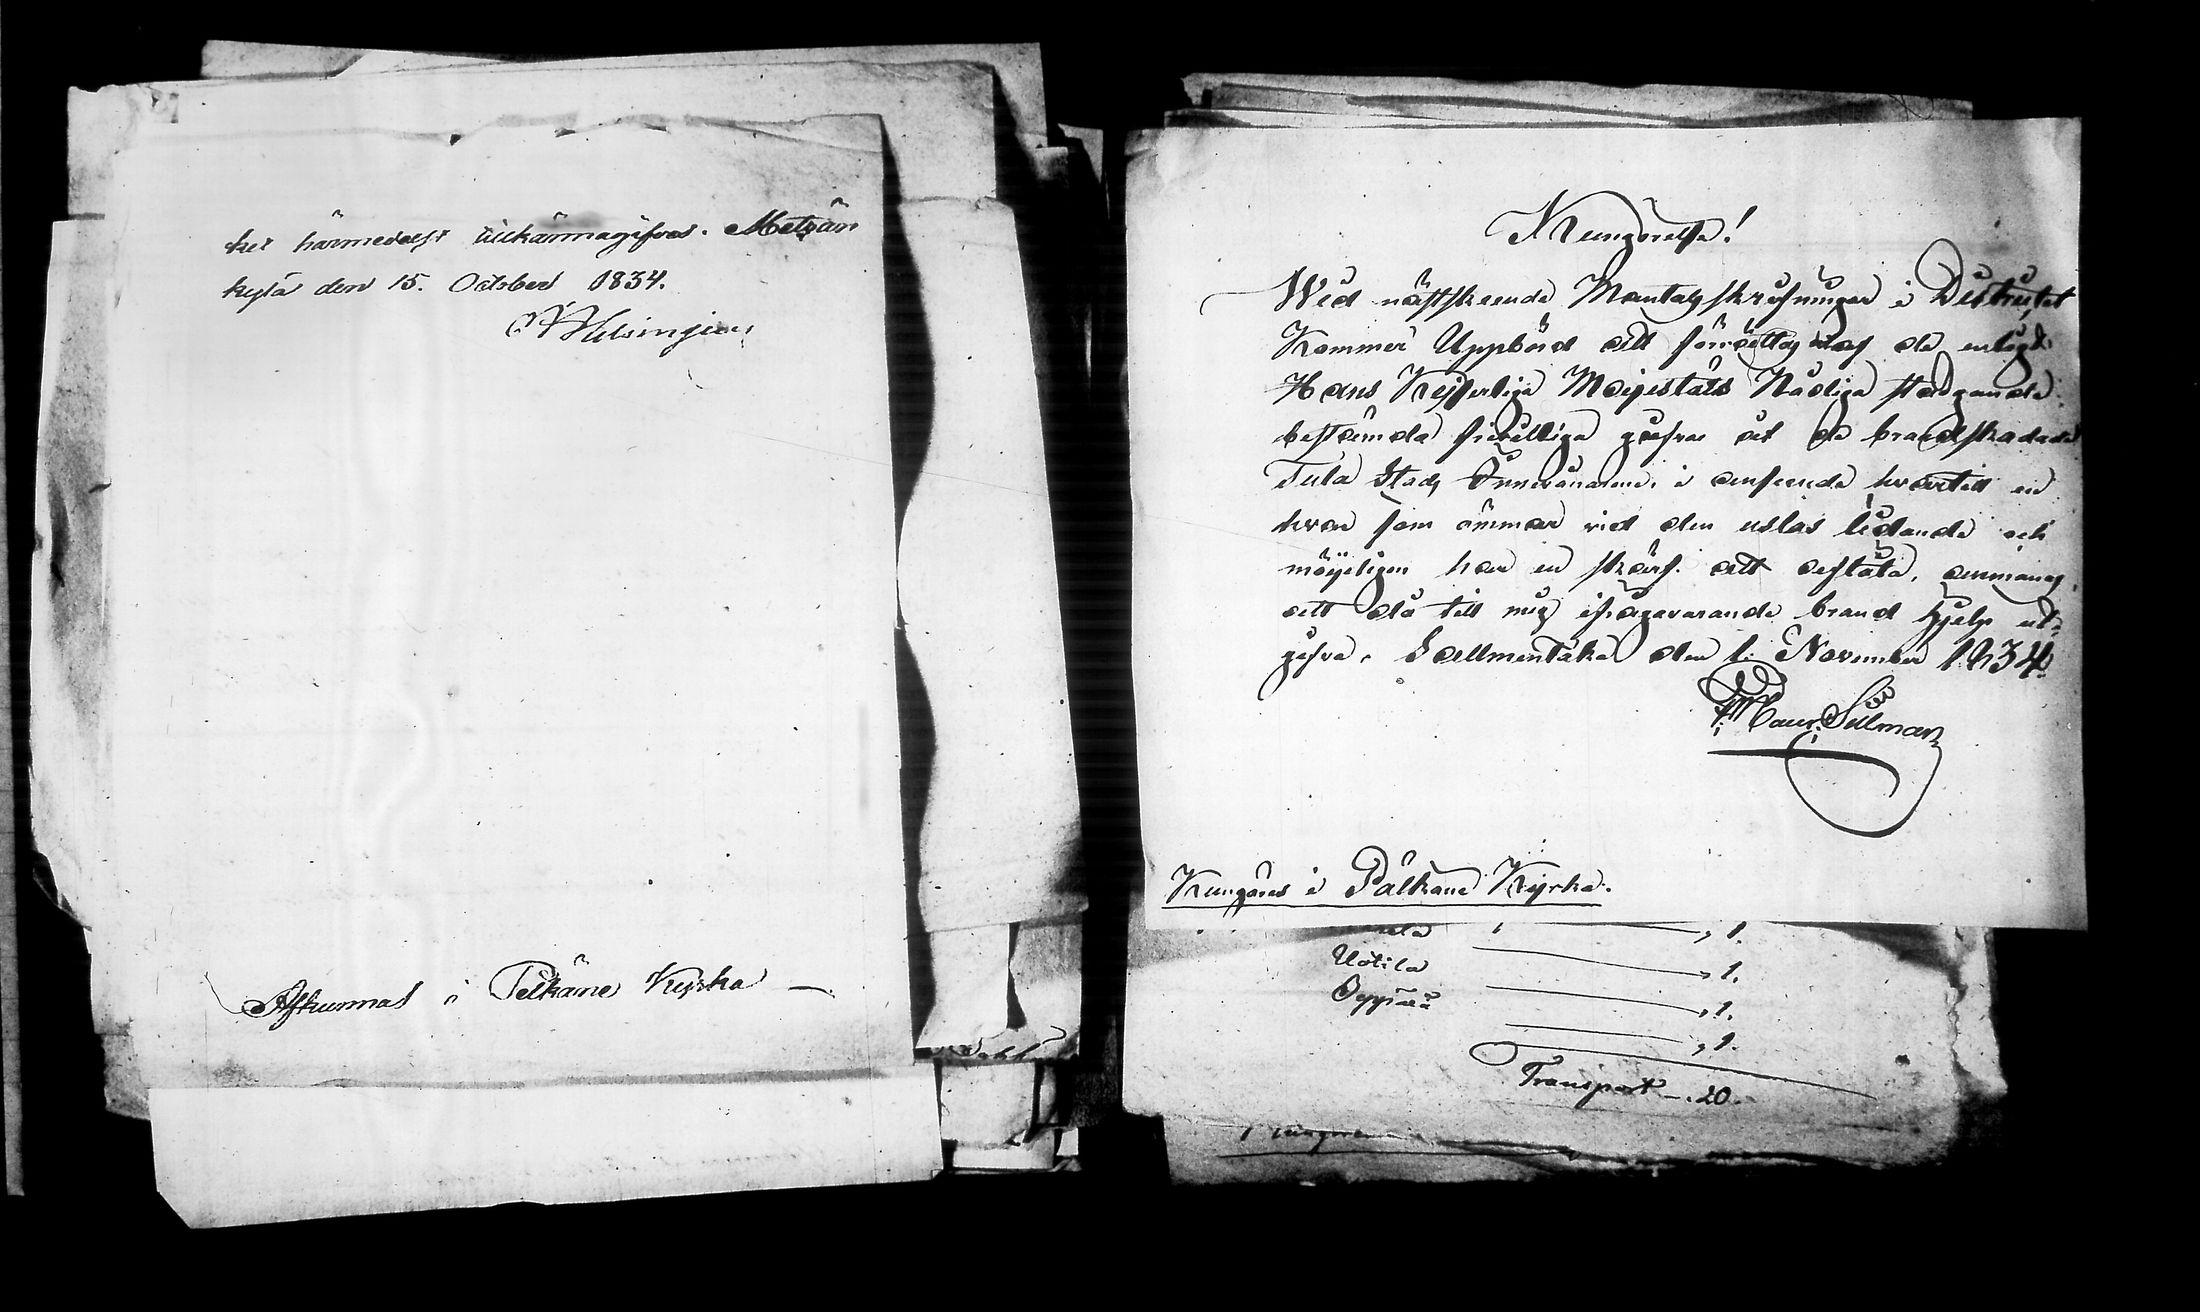 ket härmedelst tillkännagifves. Metsän
kylä den 15. October 1834.
Helsingius
Afkunnas i Pelkäne Kyrka —
Kungörelse!
Wid nästskeende Mantalsskrifningar i Districtet
Kommer Uppbörd att förrättas af de enligt
Hans Kejserliga Majestäts Nådiga stadgande
bestämda friwilliga gåfvor åt de brandskadade
Tula Stads Innevånarne, i anseende hvartill en
hvar som ömmar vid den uslas lidande och
möjeligen har en skärf att afstå, anmanas
att då till mig ifrågavarande brand hjelp ut-
gifva. Sallmentaka den 1. November 1834.
Maur. Sillman
Kungöres i Pälkäne Kyrka.
" 1.
Uotila " 1.
" 1.
" 1.
Transport — . 20.